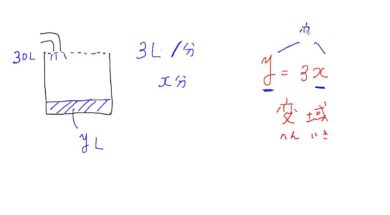 30L
3L/分
x分
yL
y = 3x
変域
へんいき